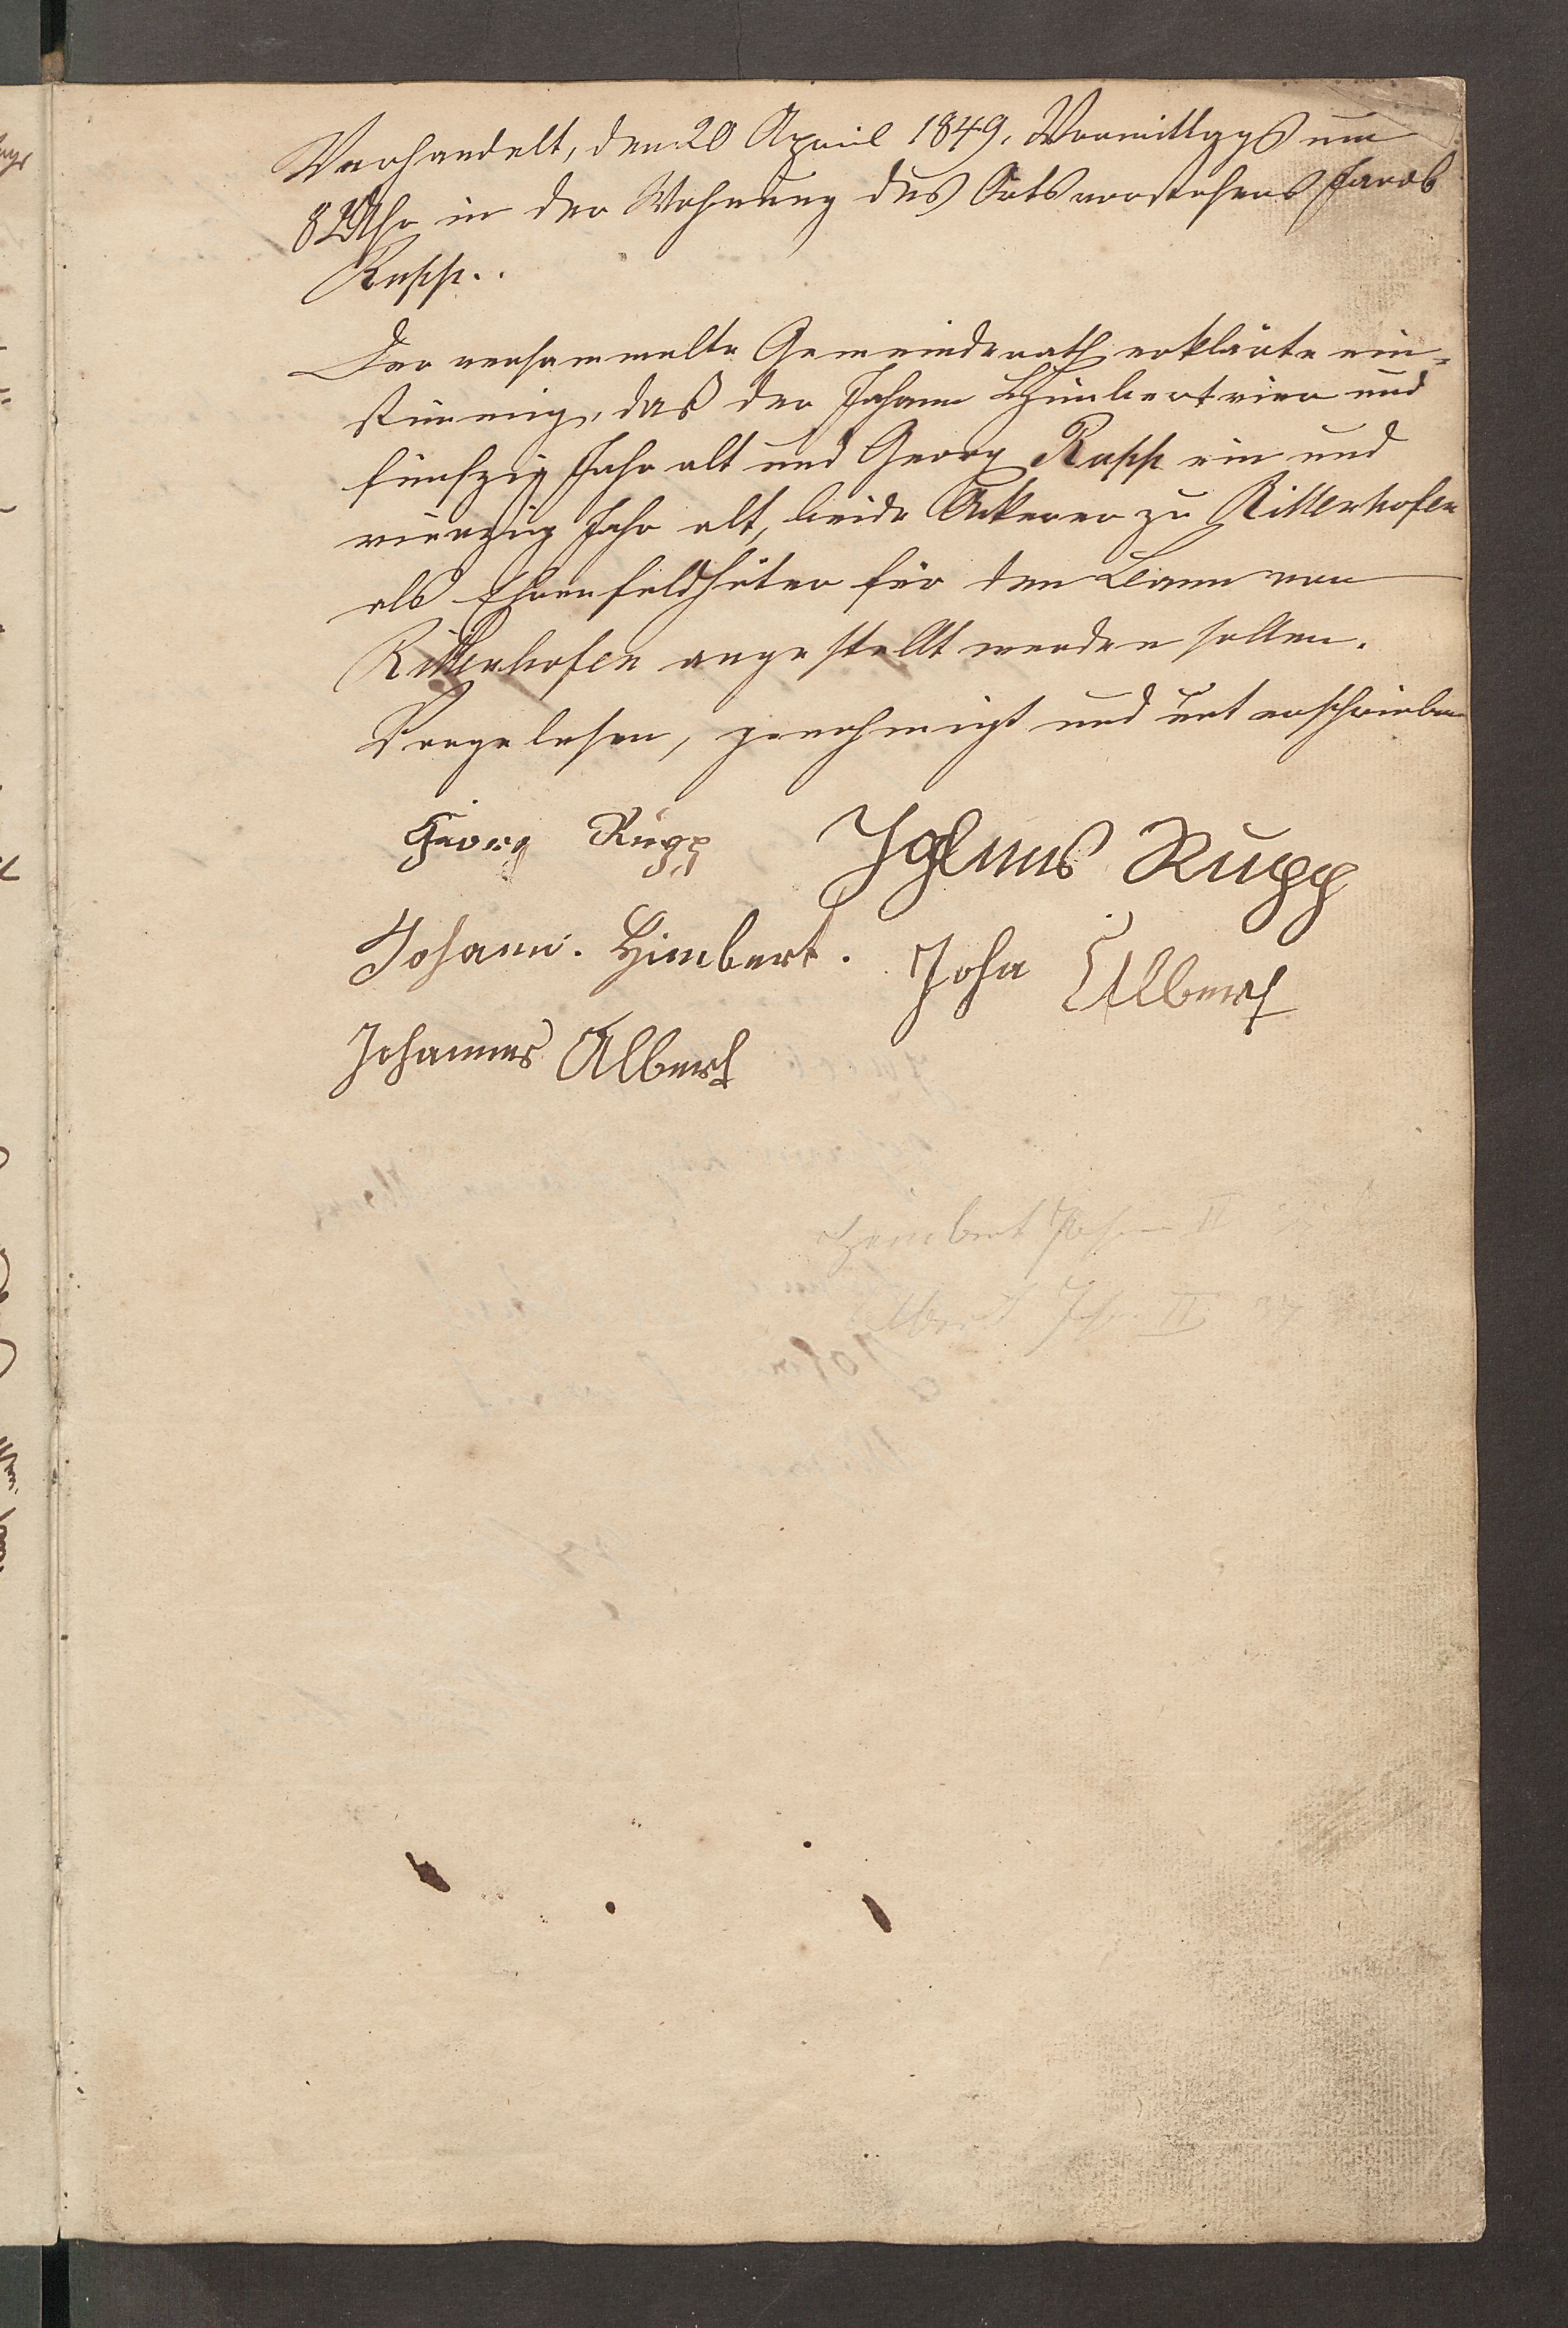 Verhandelt, den 20 April 1849, Vormittags um
8 Uhr in der Wohnung des Ortsvorstehers Jacob
Rupp..
Der versammelte Gemeinderath erklärte ein-
stimmig, daß der Johann Himbert vier und
fünfzig Jahr alt und Georg Rupp ein und
vierzig Jahr alt, beide Ackerer zu Rittenhofen
als Ehrenfeldhüter für den Bann von
Rittenhofen angestellt werden sollen.
Vorgelesen, genehmigt und unterschrieben
Georg Rupp
Rupp
Johann. Himbert.
Joha Albert
Johannes Albert
Himbert Joh II
Albert Joh II 37